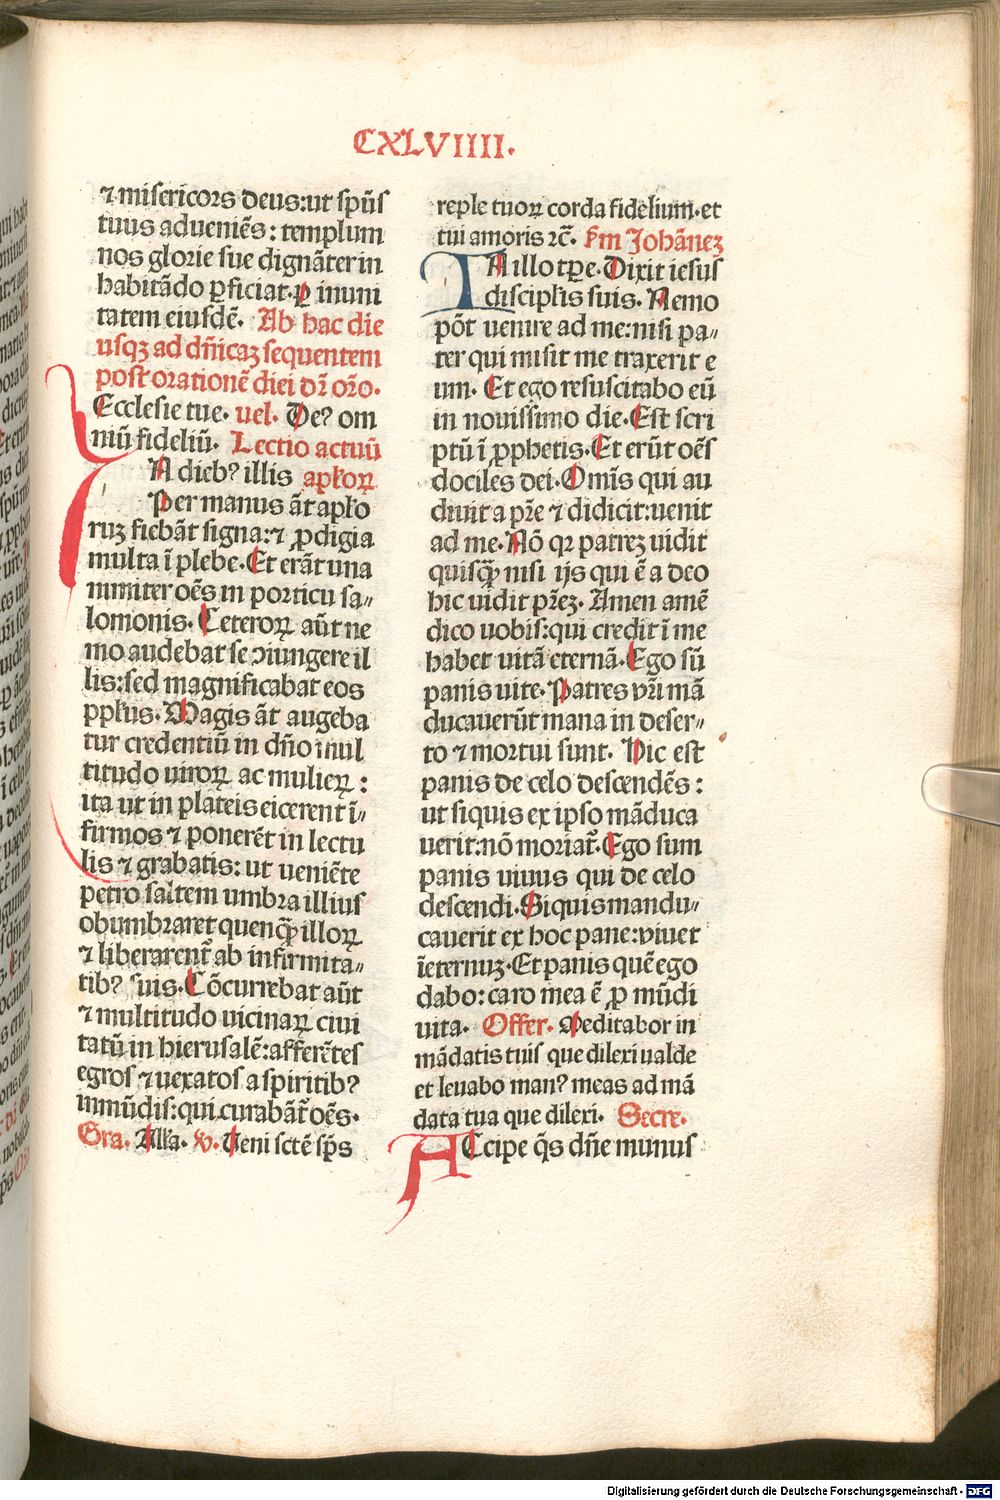 CXLVIIII.
⁊ misericors deus:ut spūs
tuus adueniēs: templum
nos glorie sue dignāter in
habitādo ꝑficiat. ꝑ in uni
tatem eiusdē. Ab hac die
usqꝫ ad dn̄icaꝫ sequentem
post orationē diei dr̄ orō.
Ecclesie tue. uel. Deꝰ om
niū fideliū. Lectio actuū
IN diebꝰ illis apl'oꝝ
Per manus āt apl'o
ruꝫ fiebāt signa:⁊ ꝓdigia
multa ī plebe. Et erāt una
nimiter oēs in porticu sa⸗
lomonis. Ceteroꝝ aūt ne
mo audebat se ↄiungere il
lis:sed magnificabat eos
ppl'us. Magis āt augeba
tur credentiū in dn̄o mul
titudo uiroꝝ ac mulieꝝ :
ita ut in plateis eicerent ī⸗
firmos ⁊ ponerēt in lectu
lis ⁊ grabatis: ut ueniēte
petro saltem umbra illius
obumbraret quenꝙ̄ illoꝝ
⁊ liberarent̄ ab infirmita⸗
tibꝰ suis. Cōcurrebat aūt
⁊ multitudo uicinaꝝ ciui
tatū in hierusalē:afferētes
egros ⁊ uexatos a spiritibꝰ
inmūdis:qui curabāt̄ oēs.
Gra. Alľa. v. Veni sctē sp̄s
reple tuoꝝ corda fidelium.et
tui amoris ⁊c̄. S'm Johāneꝫ
IN illo tꝑe. Dixit iesus
discipl'is suis. Nemo
pōt uenire ad me:nisi pa⸗
ter qui misit me traxerit e
um. Et ego resuscitabo eū
in nouissimo die. Est scri
ptū ī ꝓphetis. Et erūt oēs
dociles dei. Omīs qui au
diuit a pr̄e ⁊ didicit:uenit
ad me. Nō qꝛ patreꝫ uidit
quisꝙ̄ nisi ijs qui ē a deo
hic uidit pr̄eꝫ. Amen amē
dico uobis:qui credit ī me
habet uitā eternā. Ego sū
panis uite. Patres vr̄i mā
ducauerūt mana in deser⸗
to ⁊ mortui sunt. Hic est
panis de celo descendēs :
ut siquis ex ipso māduca
uerit:nō moriat̄. Ego sum
panis uiuus qui de celo
descendi. Siquis mandu⸗
cauerit ex hoc pane:viuet
īeternuꝫ. Et panis quē ego
dabo: caro mea ē ꝓ mūdi
uita. Offer. Meditabor in
mādatis tuis que dilexi ualde
et leuabo manꝰ meas ad mā
data tua que dilexi. Secre.
ACcipe q̄s dn̄e munus
Digitalisierung gefördert durch die Deutsche Forschungsgemeinschaft - DFG